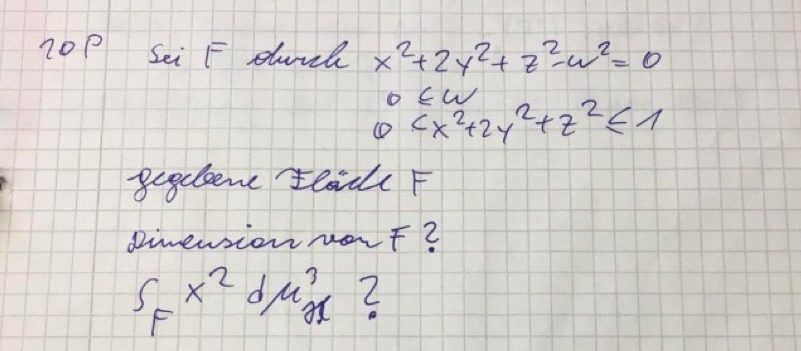 20P Sei F durch x²+2y²+z²-w²=0
0 ≤ w
0 < x²+2y²+z² ≤ 1
gegebene Fläche F
Dimension von F?
∫_F x² dμ³_H ?